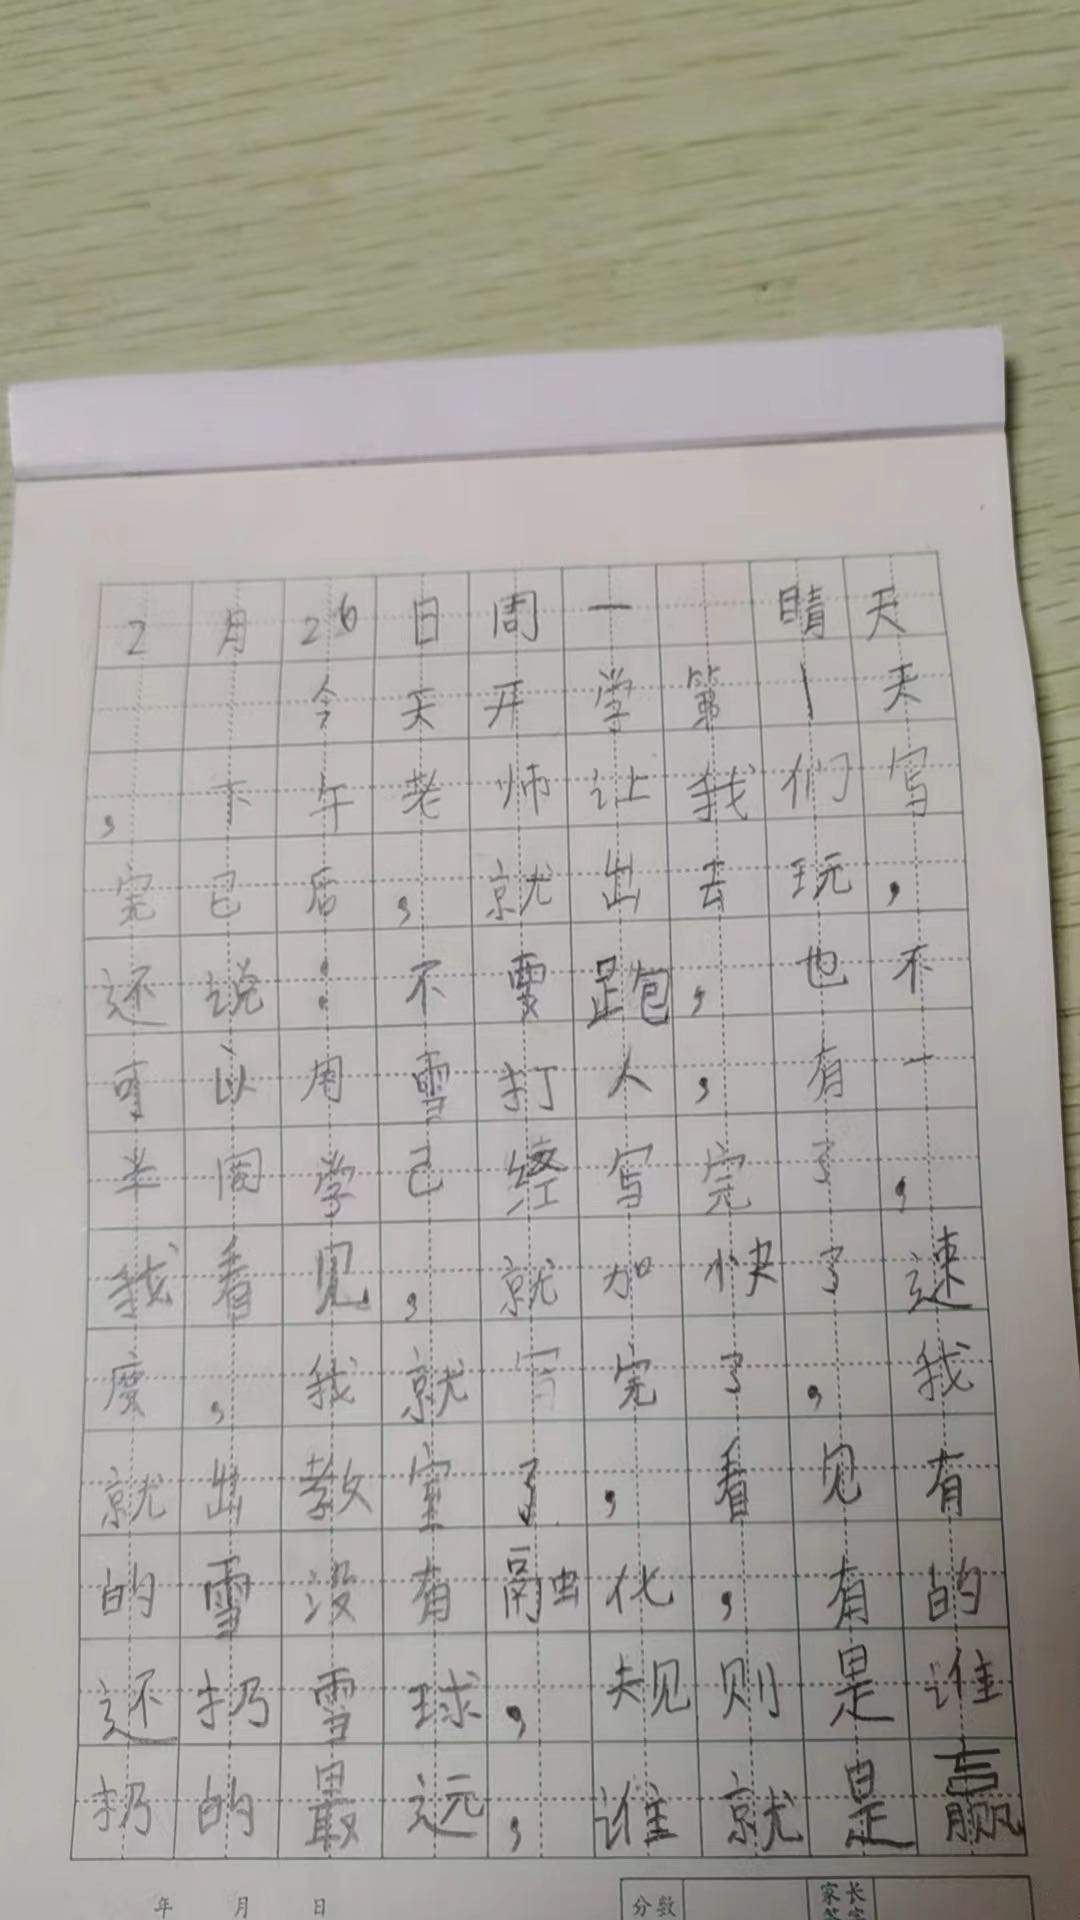 2月26日周一 晴天
今天开学第一天
，下午老师让我们写
完已后，就出去玩，
还说：不要跑，也不
可以用雪打人，有一
半同学已经写完了，
我看见，就加快了速
度，我就写完了，我
就出教室了，看见有
的雪没有融化，有的
还扔雪球，规则是谁
扔的最远，谁就是赢
年 月 日
分数
家长